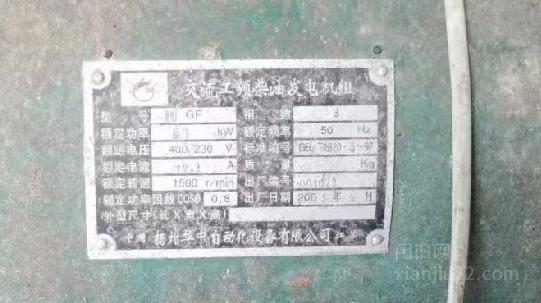 交流工频柴油发电机组
型号 GF 相数 3
额定功率 kW 额定频率 50 Hz
额定电压 400/230 V 标准编号 GB/T2820-97
额定电流 A 质量 Kg
额定转速 1500 r/min 出厂编号
额定功率因数COSΦ 0.8 出厂日期 200 年 月
外型尺寸(长X宽X高)
中国 扬州华中自动化设备有限公司
闲阳网
xianjw22.com